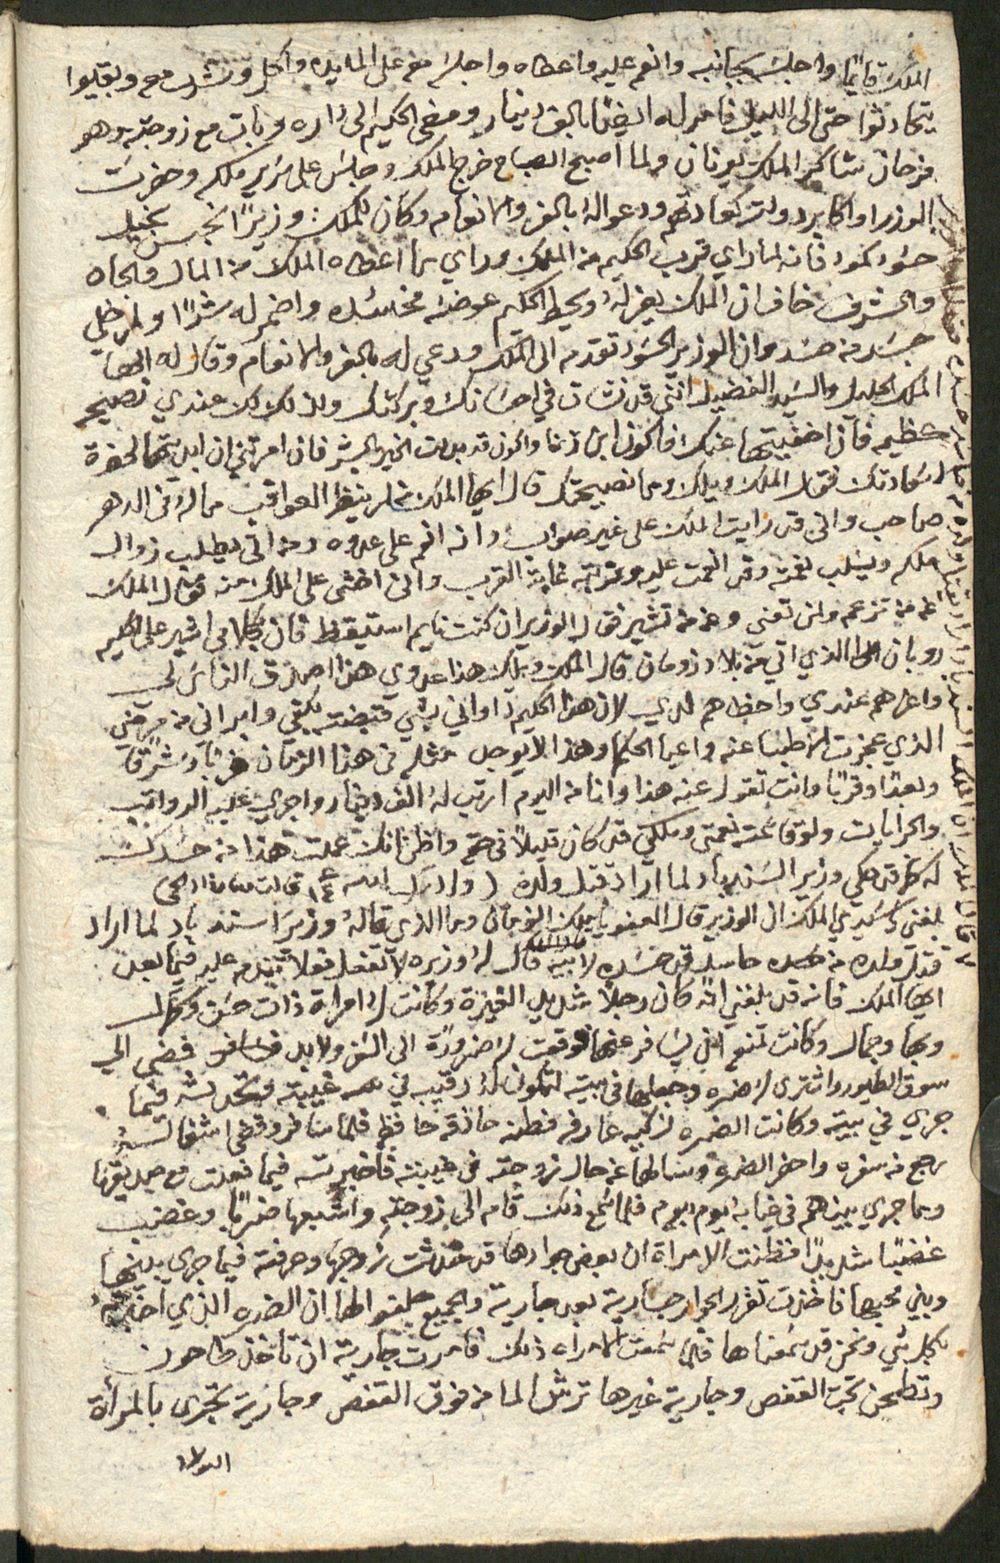 الملك قايمًا واجلسه بجانبه وانعم عليه واعطاه واجلسه معه على المايده واكل وشرب معه وبقيوا
يتحادثوا حتى الى الليل فامر له ايضًا بالف دينار ومضى الحكيم الى داره وبات مع زوجته وهو
فرحان شاكر الملك يونان ولما اصبح الصباح خرج الملك وجلس على سرير ملكه وحضرت
الوزرا واكابر دولته كعادتهم ودعوا له بالعز والانعام وكان للملك وزيرًا نجس بخيل
حسود كمود فانه لما راي قرب الحكيم من الملك وراي ما اعطاه الملك من المال والجاه
والشرف خاف ان الملك يعزله ويحط الحكيم عوضه فحسده واضمر له شرًا ولم خلي
جسد من حسد وان الوزير الحسود تقدم الى الملك ودعي له بالعز والانعام وقال له ايها
الملك الجليل والسيد الفضيل انني قد نشات في احسانك وبركتك ولذلك لك عندي نصيحه
عظيمه فان اخفيتها عنك فاكون ابن زنا واكون قد بدلت الخير بالشر فان امرتني ان ابديتها لحضرة
سعادتك فقال الملك ويلك وما نصيحتك قال ايها الملك من لم ينظر العواقب ما له في الدهر
صاحب واني قد رايت الملك على غير صواب وانه انعم على عدوه ومن اتى يطلب زوال
ملكه ويسلب نعمته وقد انعمت عليه وقربته غاية القرب واني اخشى على الملك منه فقال الملك
عن من تزعم ولمن تعني وعن من تشير فقال الوزير ان كنت نايم استيقظ فان كلامي اشير على الحكيم
رويان الذي اتى من بلاد زومان قال الملك ويلك هذا عدوي هذا اصدق الناس لي
واعزهم عندي واحظاهم لدي لان هذا الحكيم داواني بشي قبضته بكفي وابراني من مرضي
الذي عجزت الاطبا عنه واعيا الحكما وهذا لا يوجد مثله في هذا الزمان غربًا وشرقًا
وبعدًا وقربًا وانت تقول عنه هذا وانا من اليوم ارتب له الف دينار واجري عليه الرواتب
والجرايات ولو قاسمته نعمتي وملكي قد كان قليلاً في حقه واظن انك عملت هذا من حسدك
له كما قد حكي وزير السندباد لما اراد قتل ولده ( وادرك
بلغني يا سيدي الملك ان الوزير قال العفو يا ملك الزمان وما الذي قاله وزير السندباد لما اراد
قتل ولده من حاسد قد حسده لابنه قال له وزيره لا تفعل فعلاً تندم عليه فيما بعد
ايها الملك فانه قد بلغني انه كان رجلاً شديد الغيرة وكانت له امراة ذات حسن وكمال
وبها وجمال وكانت تمنعه انه يسافر عنها فوقعت له ضرورة الى السفر ولا بد فمضى الى
سوق الطيور واشترى له ضره وجعلها في بيته لتكون له رقيب في غيبته وتحدثه فيما
جري في بيته وكانت الضره زكيه عارفه فطنه حاذقه حافظه فلما سافر وقضى اشغاله
رجع من سفره واحضر الضره وسالها عن حال زوجته في غيبته فاخبرته فيما فعلت مع صديقها
وما جري بينهم في غيابه يوم بيوم فلما سمع ذلك قام الى زوجته واشبعها ضربًا وغضب
غضبًا شديدًا فظنت الامراة ان بعض جوارها قد حدثت زوجها وعرفته فيما جرى بينها
وبين محبها فاخذت تقرر الجوار جارية بعد جارية والجميع حلفوا لها ان الضره الذي اخبرته
بكل شي ونحن قد سمعناها فلما سمعت الامراه ذلك فامرت جارية ان تاخذ طاحون
وتطحن تحت القفص وجارية غيرها ترش الما من فوق القفص وجارية تجري بالمراة